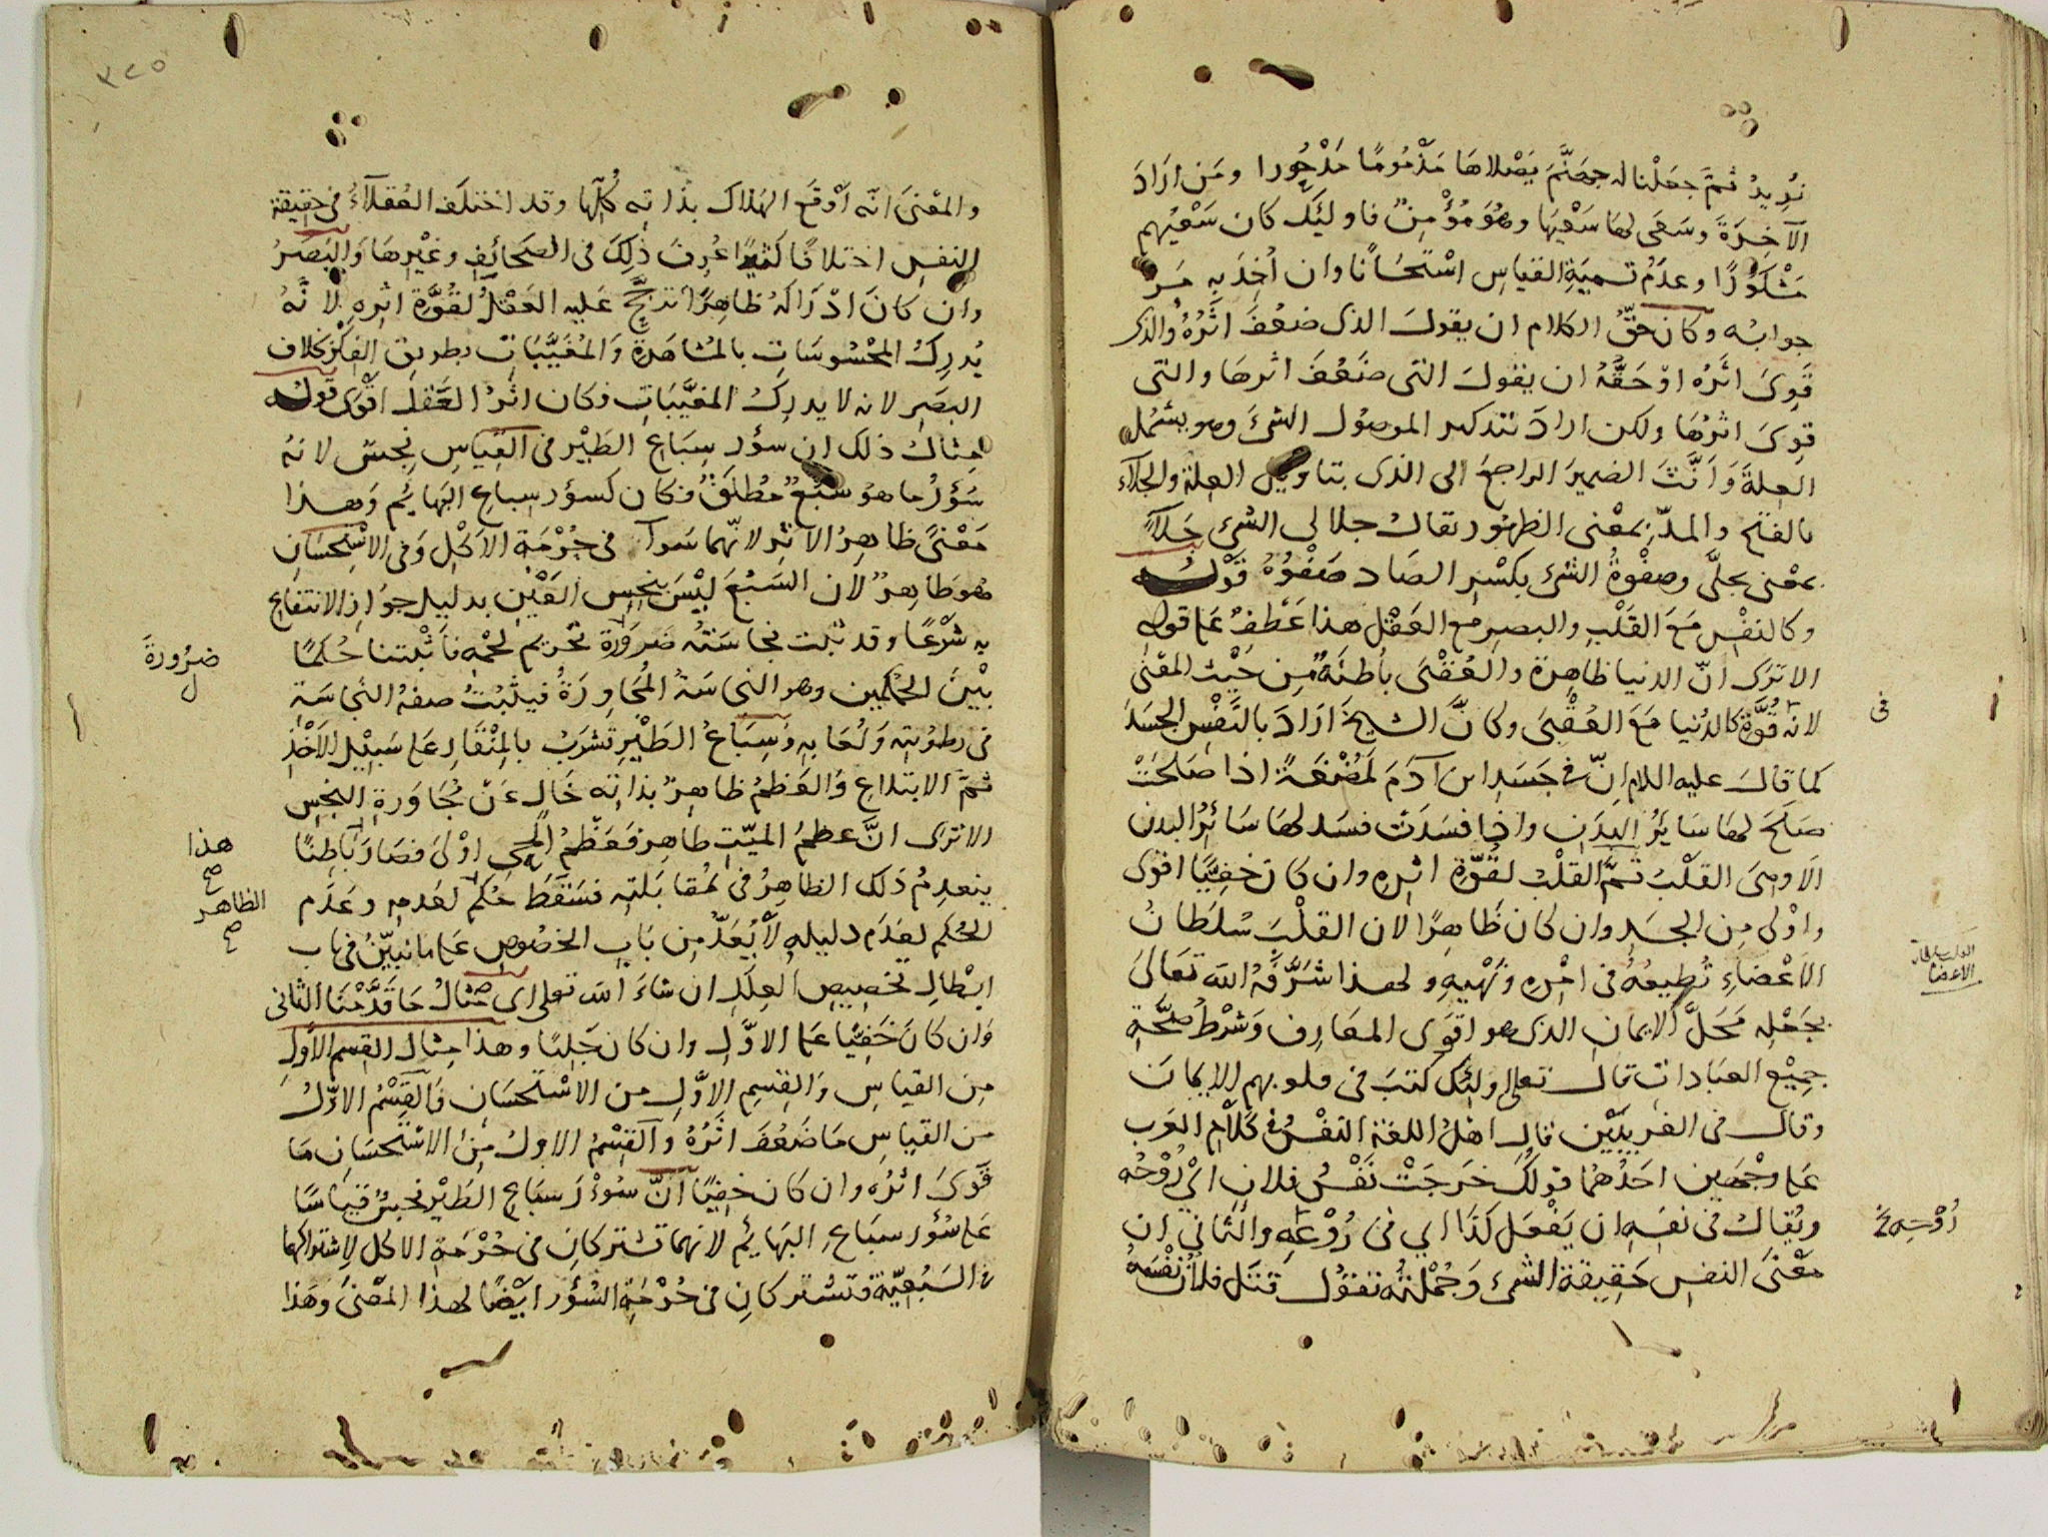 نُرِيدُ ثمَّ جعَلْنا له جهنَّمَ يَصْلاهَا مَذْمُومًا مَدْحُورا ومَن ارَادَ
الآخِرَةَ وسَعَى لها سَعْيَهَا وهُوَ مُؤْمِنٌ فاوليئك كان سَعْيُهم
مَشْكُورًا وعدَمُ تسميَةِ القياسِ اسْتحْسَانًا وان أُخِذَ بِهِ مَرَّ
جوابُه وكان حقُّ الكلام ان يقولَ الذى ضعُفَ اثَرُهُ والذى
قَوِىَ اثَرُه اوْ حَقُّهُ ان يقولَ التى ضَعُفَ اثرها والتى
قوِىَ اثرُهَا ولكن ارادَ بتذكير الموصُول الشىَ وهو يشمُل
العِلةَ وَاَنَّثَ الضميرَ الراجعَ الى الذى بتاويل العِلة والجلاَءُ
بالفتح والمدّ بمعْنى الظهُور يقالُ جلا لى الشىءُ جَلاَءً
بمعْنى تجلَّى وصِفْوةُ الشىء بكسْرِ الصَاد صَفْوُهُ قَوْلُه
وكالنفْس مَعَ القَلْبِ والبصرِ مع العَقْل هذا عَطْفٌ على قوله
الا ترَى انّ الدنيا ظاهِرة والعُقْبَى باطنَةٌ مِن حَيْث المعْنى
لانه قُوَّة كالدُنيا مَعَ العُقْبَى وكانَّ الشيخَ ارَادَ بالنَّفْسِ الجسَدَ
كما قالَ عليه السلام انّ فى جَسَدِ ابن آدَمَ لَمُضْغَةً اذا صَلحَتْ
صَلَحَ لها سَايَرُ البدَنِ واذا فسَدَتْ فسَد لها سَائرُ البدن
الَا وهىَ القلْبُ ثمَّ القلْبُ لقُوّة اثرِهِ وان كان خفِيًّا اقوى
واوْلى مِن الجسَدِ وان كان ظَاهِرًا لان القلْبَ سُلطَانُ
الاعْضاءِ تُطيعُهُ فى امْرِهِ ونَهْيِهِ ولهذا شَرَّفهُ الله تعَالىَ
بجَعْلِه مَحَلَّ الايمانِ الذى هو اقوَى المعَارِف وشرْطُ صحَّةِ
جميْع العبَادات قال تعلى اولئك كتبَ فى قلوبهم الايمانَ
وقالَ فى الغريبَيْن قال اهْلُ اللغةِ النفْسُ فى كَلاَمِ العَربِ
على وجْهَين احَدُهُما قولُكَ خرَجَتْ نَفْسُ فلان اىْ رُوْحُه
ويُقالُ فى نفسِهِ ان يَفْعَل كَذَا اى فى رُوْعِهِ والثّانى ان
معْنَى النفسِ حَقِيقة الشىء وجُمْلتُه تقُول قتَل فلانٌ نفْسَهُ
فى
القلب سلطان
الاعضا
رُوْحِه خ
٣٢٥
والمعْنى انّه اَوْقعَ الهلاكَ بذاتِه كُلِّها وقد اختلَف العُقلاَءُ فى حقيقة
النفسِ اختلافًا كثيرًا عُرِفَ ذلِكَ فى الصَحائفِ وغيْرِها وَالبَصَرُ
وان كانَ ادْرَاكُهُ ظاهِرًا ترجَّحَ عَليه العَقْلُ لقُوَّة اثرِه لاَنَّهُ
يُدرِكُ المحْسُوسَاتِ بالمُشاهَدة وَالمُغيَّبَاتِ بطريق الفِكْر بخلاف
البصَرِ لانه لا يدرِكُ المغيَّبَاتِ فكان اثرُ العَقل اقْوَى قَولُه
مِثالُ ذلك ان سؤر سِبَاعِ الطَيْر فى القِيَاسِ نجسٌ لانهُ
سُؤرُ ما هو سَبُعٌ مُطلَقٌ فكان كسؤر سِباعِ البهَايم وَهذا
مَعْنىً ظاهِرُ الاثر لانّهما سَوآءٌ فى حُرْمَة الاكل وَفى الاسْتحسَانِ
هُو طَاهِرٌ لان السَبُعَ ليْسَ بنجِسِ العَيْنِ بدليلِ جَوَازِ الانتفاع
بِه شَرْعًا وقد ثبتت نجاسَتُه ضَرَوْرَة تحْريم لحْمه فَأَثْبَتنا حُكمًا
بيْنَ الحُكْمَين وهو النجاسَةُ المُجَاوِرَةُ فيثبُتُ صفةُ النجاسَةِ
فى رطوبتِه وَلُعَابِه وسِبَاعُ الطَيْرِ تشرَبُ بالمنْقارِ على سَبِيْل الاخْذِ
ثمّ الابتلاعِ وَالعَظمُ طاهِرٌ بذاتِه خَالٍ عَنْ مُجَاوَرَةِ النجِسِ
الا ترَى انَّ عظمَ الميّتِ طاهِر فعَظْمُ الحىِّ اوْلىَ فصَارَ بَاطِنًا
ينعدِمُ ذلك الظاهِرُ فى مُقابَلتِه فسَقَط حُكمُ لعَدمِه وعدَم
الحُكم لعَدَم دليله لاَ يُعَدُّ مِن بَابِ الخصُوصِ على ما نُبيّنُ فى باب
ابْطالِ تخصِيصِ العِلَلِ ان شاءَ اللّه تعلى اى مِثالُ مَا قَدَّمْنَا الثانى
وَان كانَ خَفِيًّا على الاوَّلِ وان كان جَليًا وهذا مِثالُ القِسمِ الأوَّل
مِن القياسِ وَالقِسمِ الاوَّلِ من الاسْتحسَان فَالقِسْمُ الاوَّلُ
من القياسِ مَا ضَعُفَ اثَرُهُ والقِسْمُ الاولُ مِن الاسْتحسَانِ مَا
قَوَىَ اثرُه وان كان خفِيًا انَّ سُوءْرَ سِبَاعِ الطَيْر نجسٌ قيَاسًا
على سُؤر سبَاعِ البهَايِم لانهما تشتركانِ فى حُرْمَة الاكل لاشتراكهما
فى السَبُعِيَّة فتشتركانِ فى حُرْمَة السُؤر ايْضًا لهذا المعْنَى وهَذا
ضرُورةَ
ل
هذا
صح
الظاهر
صح